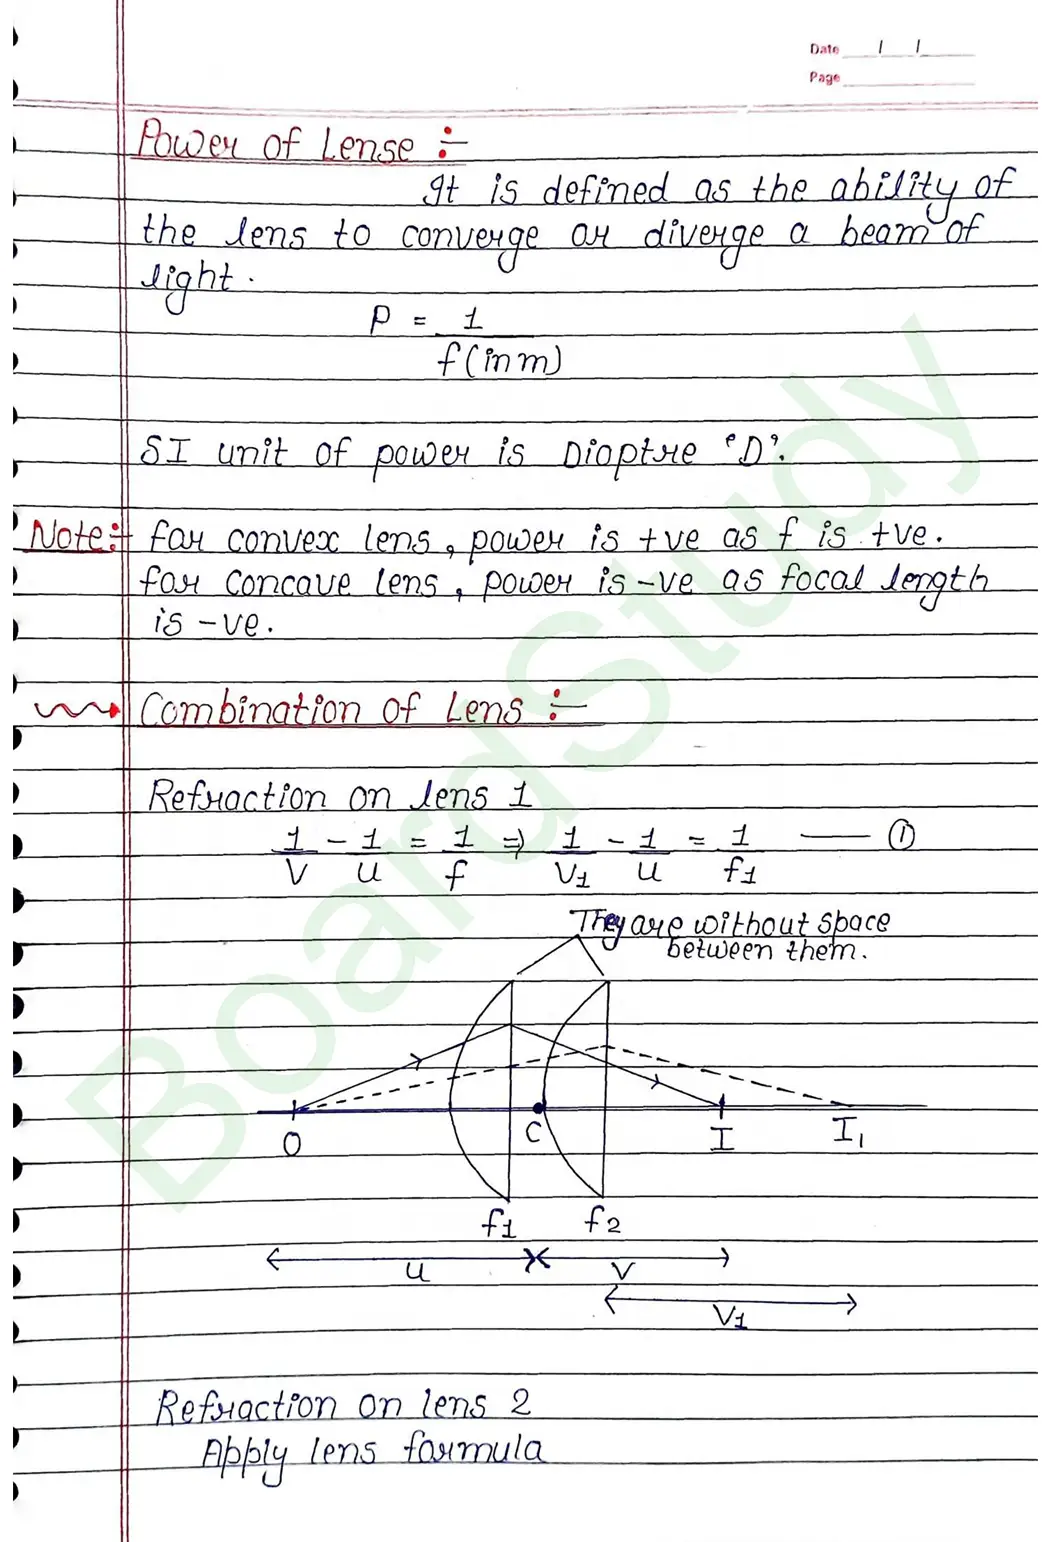 Date / /
Page
Power of Lense :-
It is defined as the ability of
the lens to converge or diverge a beam of
light.
P = 1
f(in m)
SI unit of power is Dioptre 'D'.
Note:- for convex lens, power is +ve as f is +ve.
for concave lens, power is -ve as focal length
is -ve.
Combination of Lens :-
Refraction on lens 1
1/V - 1/u = 1/f ⇒ 1/V1 - 1/u = 1/f1 — ①
They are without space
between them.
O C I I1
f1 f2
u v
V1
Refraction on lens 2
Apply lens formula
BoardStudy